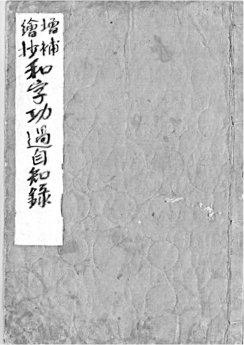 増補
繪抄
和字功過自知録